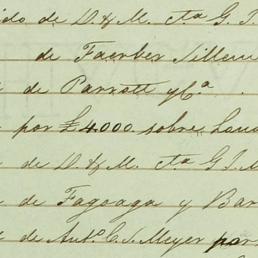 ido de D. & M. cta G. I.
de Faerber Sillem
de Parrott y Ca.
por £4000 sobre Lon
de D. & M. cta G. I. M
de Fagoaga y Bar
de Anto. C. S. Meyer par